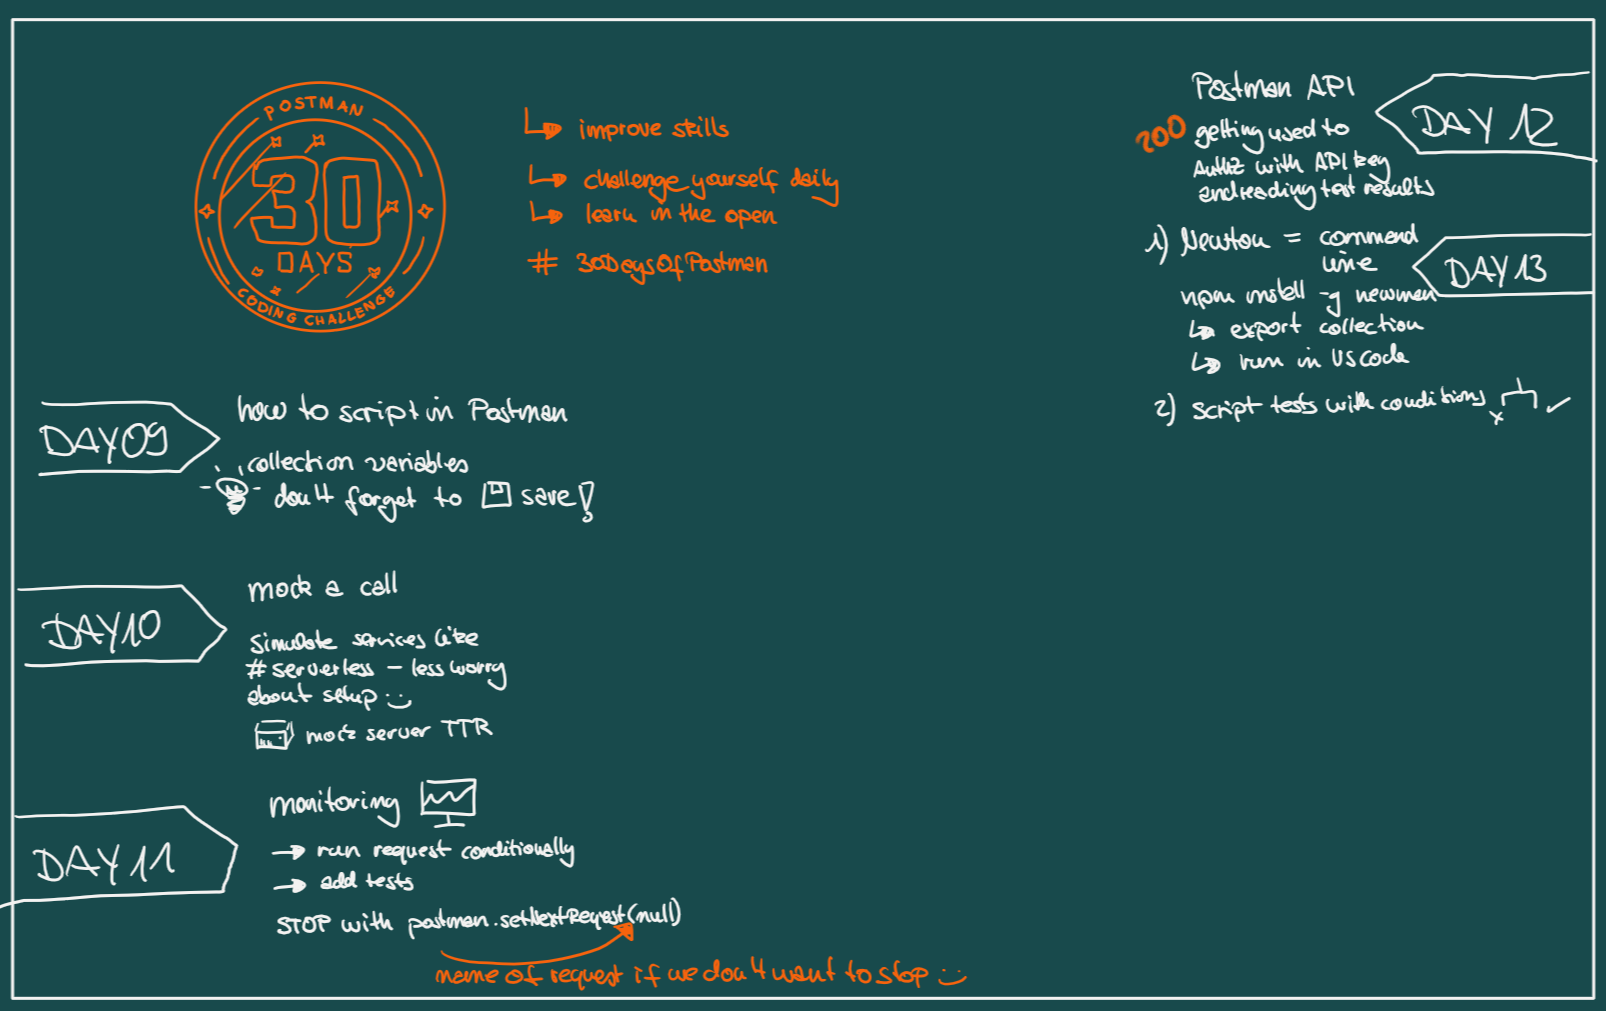 POSTMAN
30
DAYS
CODING CHALLENGE
improve skills
challenge yourself daily
learn in the open
# 30DaysOfPostman
DAY09
how to script in Postman
collection variables
don't forget to save!
DAY10
mock a call
Simulate services like
#serverless - less worry
about setup :)
mock server TTR
DAY11
monitoring
→ run request conditionally
→ add tests
STOP with postman.setNextRequest(null)
name of request if we don't want to stop :)
DAY 12
Postman API
200 getting used to
AuthZ with API key
and reading test results
DAY13
1) Newton = command
line
npm install -g newman
export collection
run in VS code
2) script tests with conditions x ✓